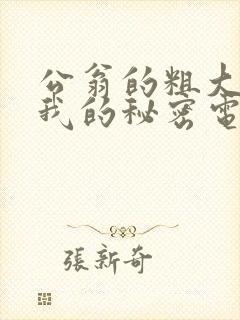 公翁的粗大
我的秘密電
張新奇